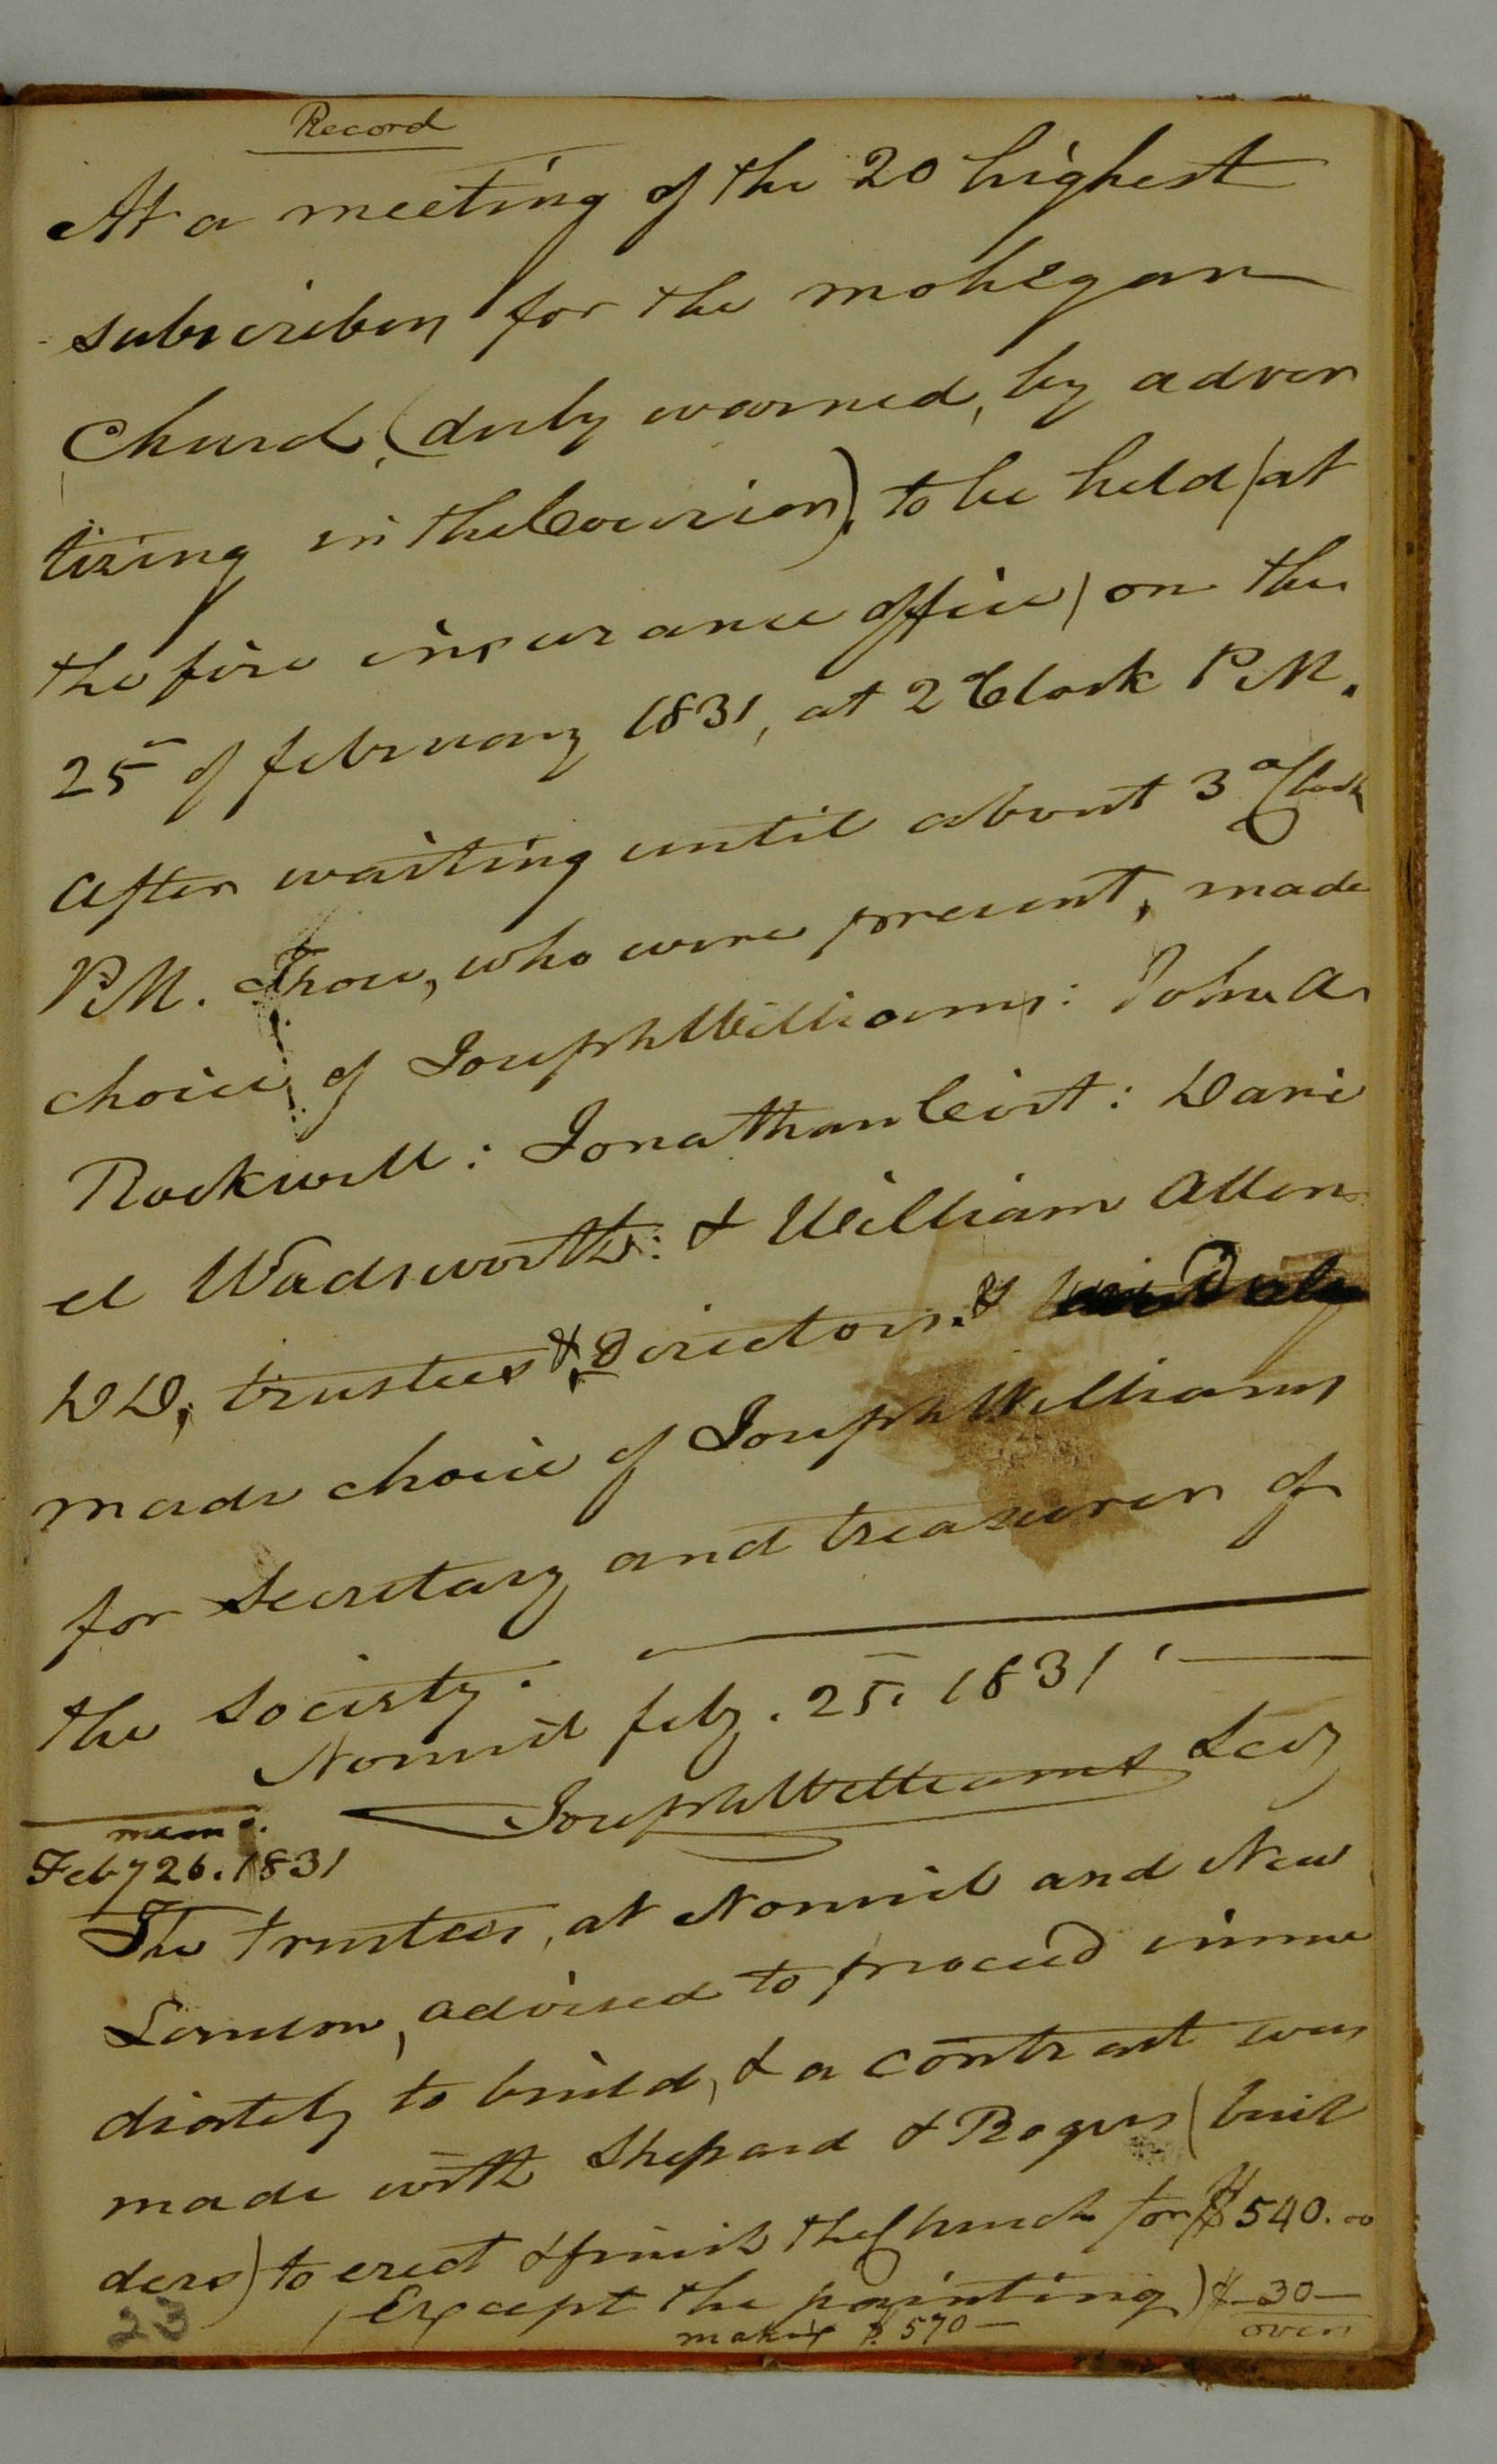 Record
At a meeting of the 20 highest
subscribers for the mohegan
Church, (duly warned, by adver
tising in the Courier), to be held (at
the fire insurance office) on the
25 of february 1831, at 2 Clock P.M.
after waiting until about 3 oClock
P.M. Those, who were present, made
choice of Joseph Williams: John A
Rockwell: Jonathan Coit: Dani
el Wadsworth: & William Allen
DD, trustees & Directors. &
made choice of Joseph Williams
for Secretary and treasurer of
the society.
Norwich feby. 25. 1831
Joseph Williams Secy
mem.
Feby 26. 1831
The trustees, at Norwich and New
London, advised to proceed imme
diately to build, & a contract was
made with Shepard & Rogers (buil
ders) to erect & finish the Church for $540.00
(Except the painting) & 30
making $ 570 over
23